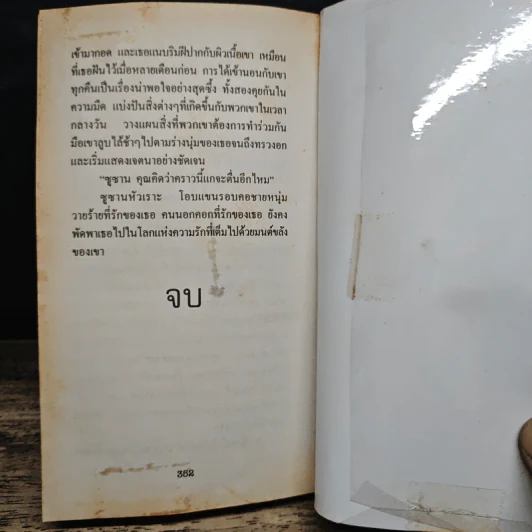 เข้ามากอด และเธอแนบริมฝีปากกับผิวเนื้อเขา เหมือน
ที่เธอฝันไว้เมื่อหลายเดือนก่อน การได้เข้านอนกับเขา
ทุกคืนเป็นเรื่องน่าพอใจอย่างสุดซึ้ง ทั้งสองคุยกันใน
ความมืด แบ่งปันสิ่งต่างๆที่เกิดขึ้นกับพวกเขาในเวลา
กลางวัน วางแผนสิ่งที่พวกเขาต้องการทำร่วมกัน
มือเขาลูบไล้ช้าๆไปตามร่างนุ่มของเธอจนถึงทรวงอก
และเริ่มแสดงเจตนาอย่างชัดเจน
“ซูซาน คุณคิดว่าคราวนี้แกจะตื่นอีกไหม”
ซูซานหัวเราะ โอบแขนรอบคอชายหนุ่ม
วายร้ายที่รักของเธอ คนนอกคอกที่รักของเธอ ยังคง
พัดพาเธอไปในโลกแห่งความรักที่เต็มไปด้วยมนต์ขลัง
ของเขา
จบ
382